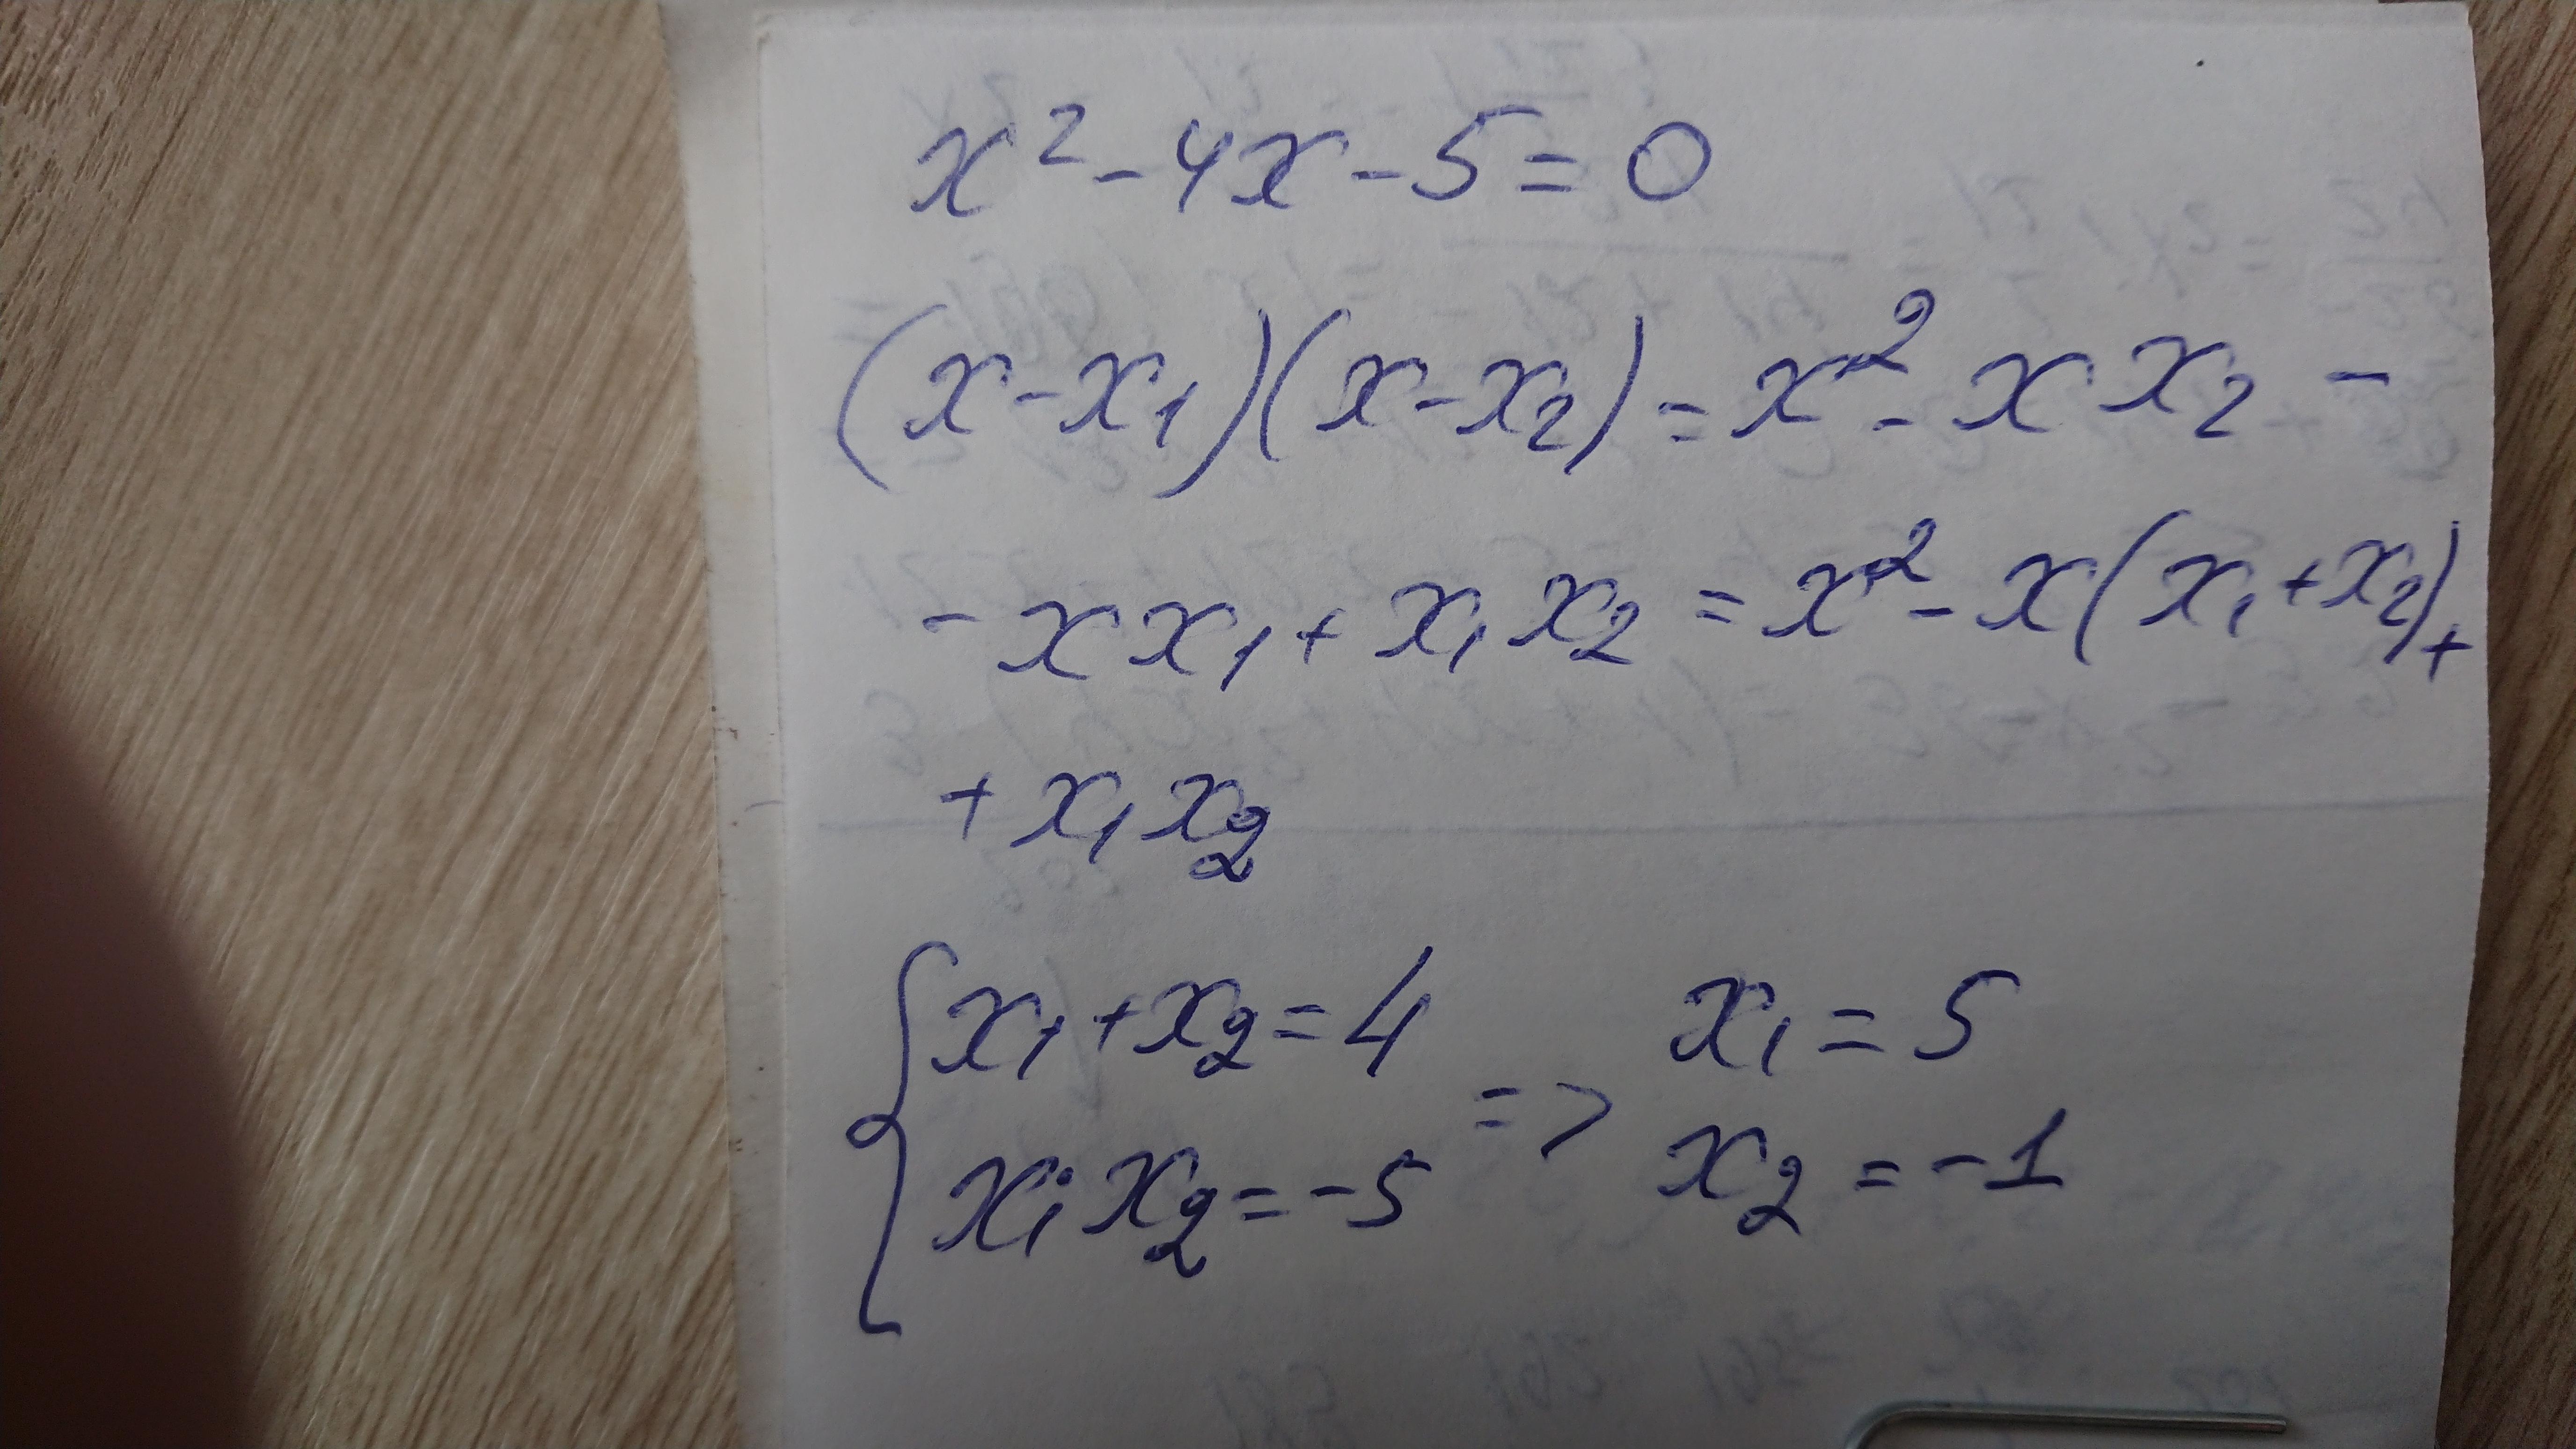 x² - 4x - 5 = 0
(x - x₁)(x - x₂) = x² - x x₂ -
- x x₁ + x₁ x₂ = x² - x(x₁ + x₂) +
+ x₁ x₂
{ x₁ + x₂ = 4 => x₁ = 5
x₁ x₂ = -5 x₂ = -1